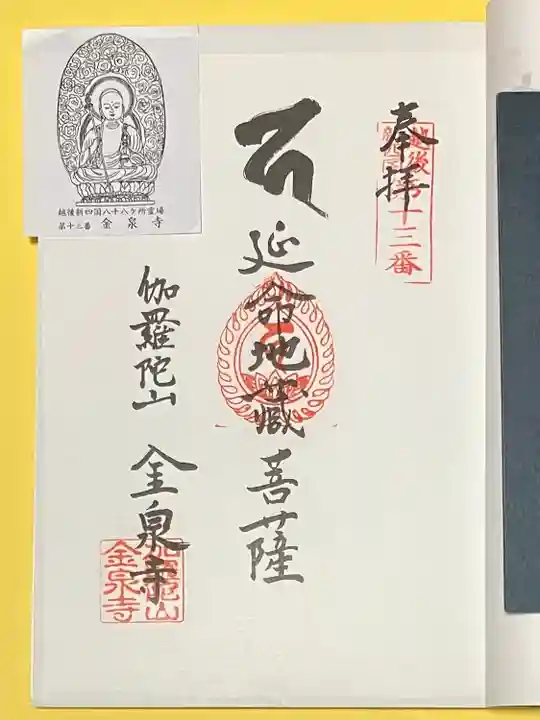 奉拝
十三番
延命地蔵菩薩
伽羅陀山 金泉寺
金泉寺
越後新四国八十八ケ所霊場
第十三番 金泉寺